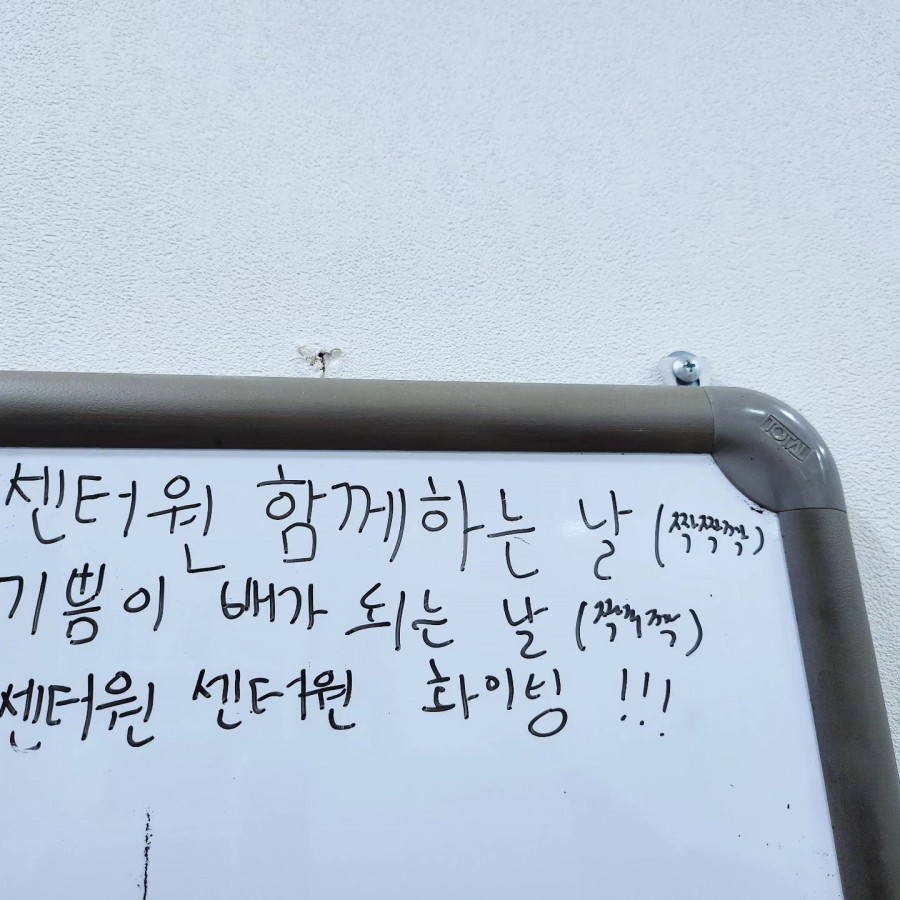 TOTAL
센터원 함께하는 날 (짝짝짝)
기쁨이 배가 되는 날 (짝짝짝)
센터원 센터원 화이팅 !!!